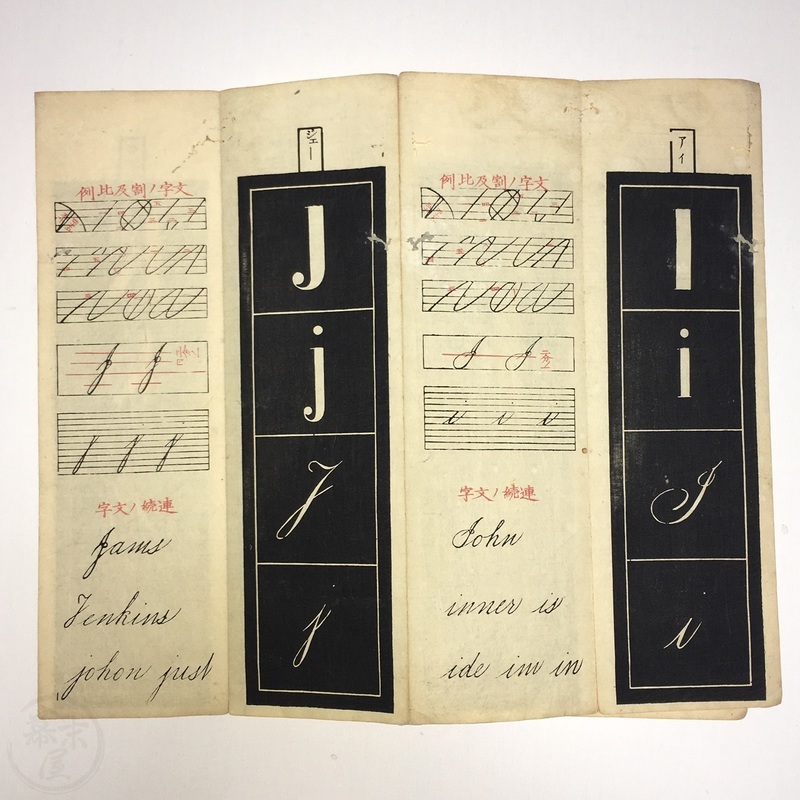 アイ
I
i
I
i
文字ノ割及比例
連続ノ文字
John
inner is
ide im in
ジェー
J
j
J
j
文字ノ割及比例
連続ノ文字
Jams
Jenkins
johon just